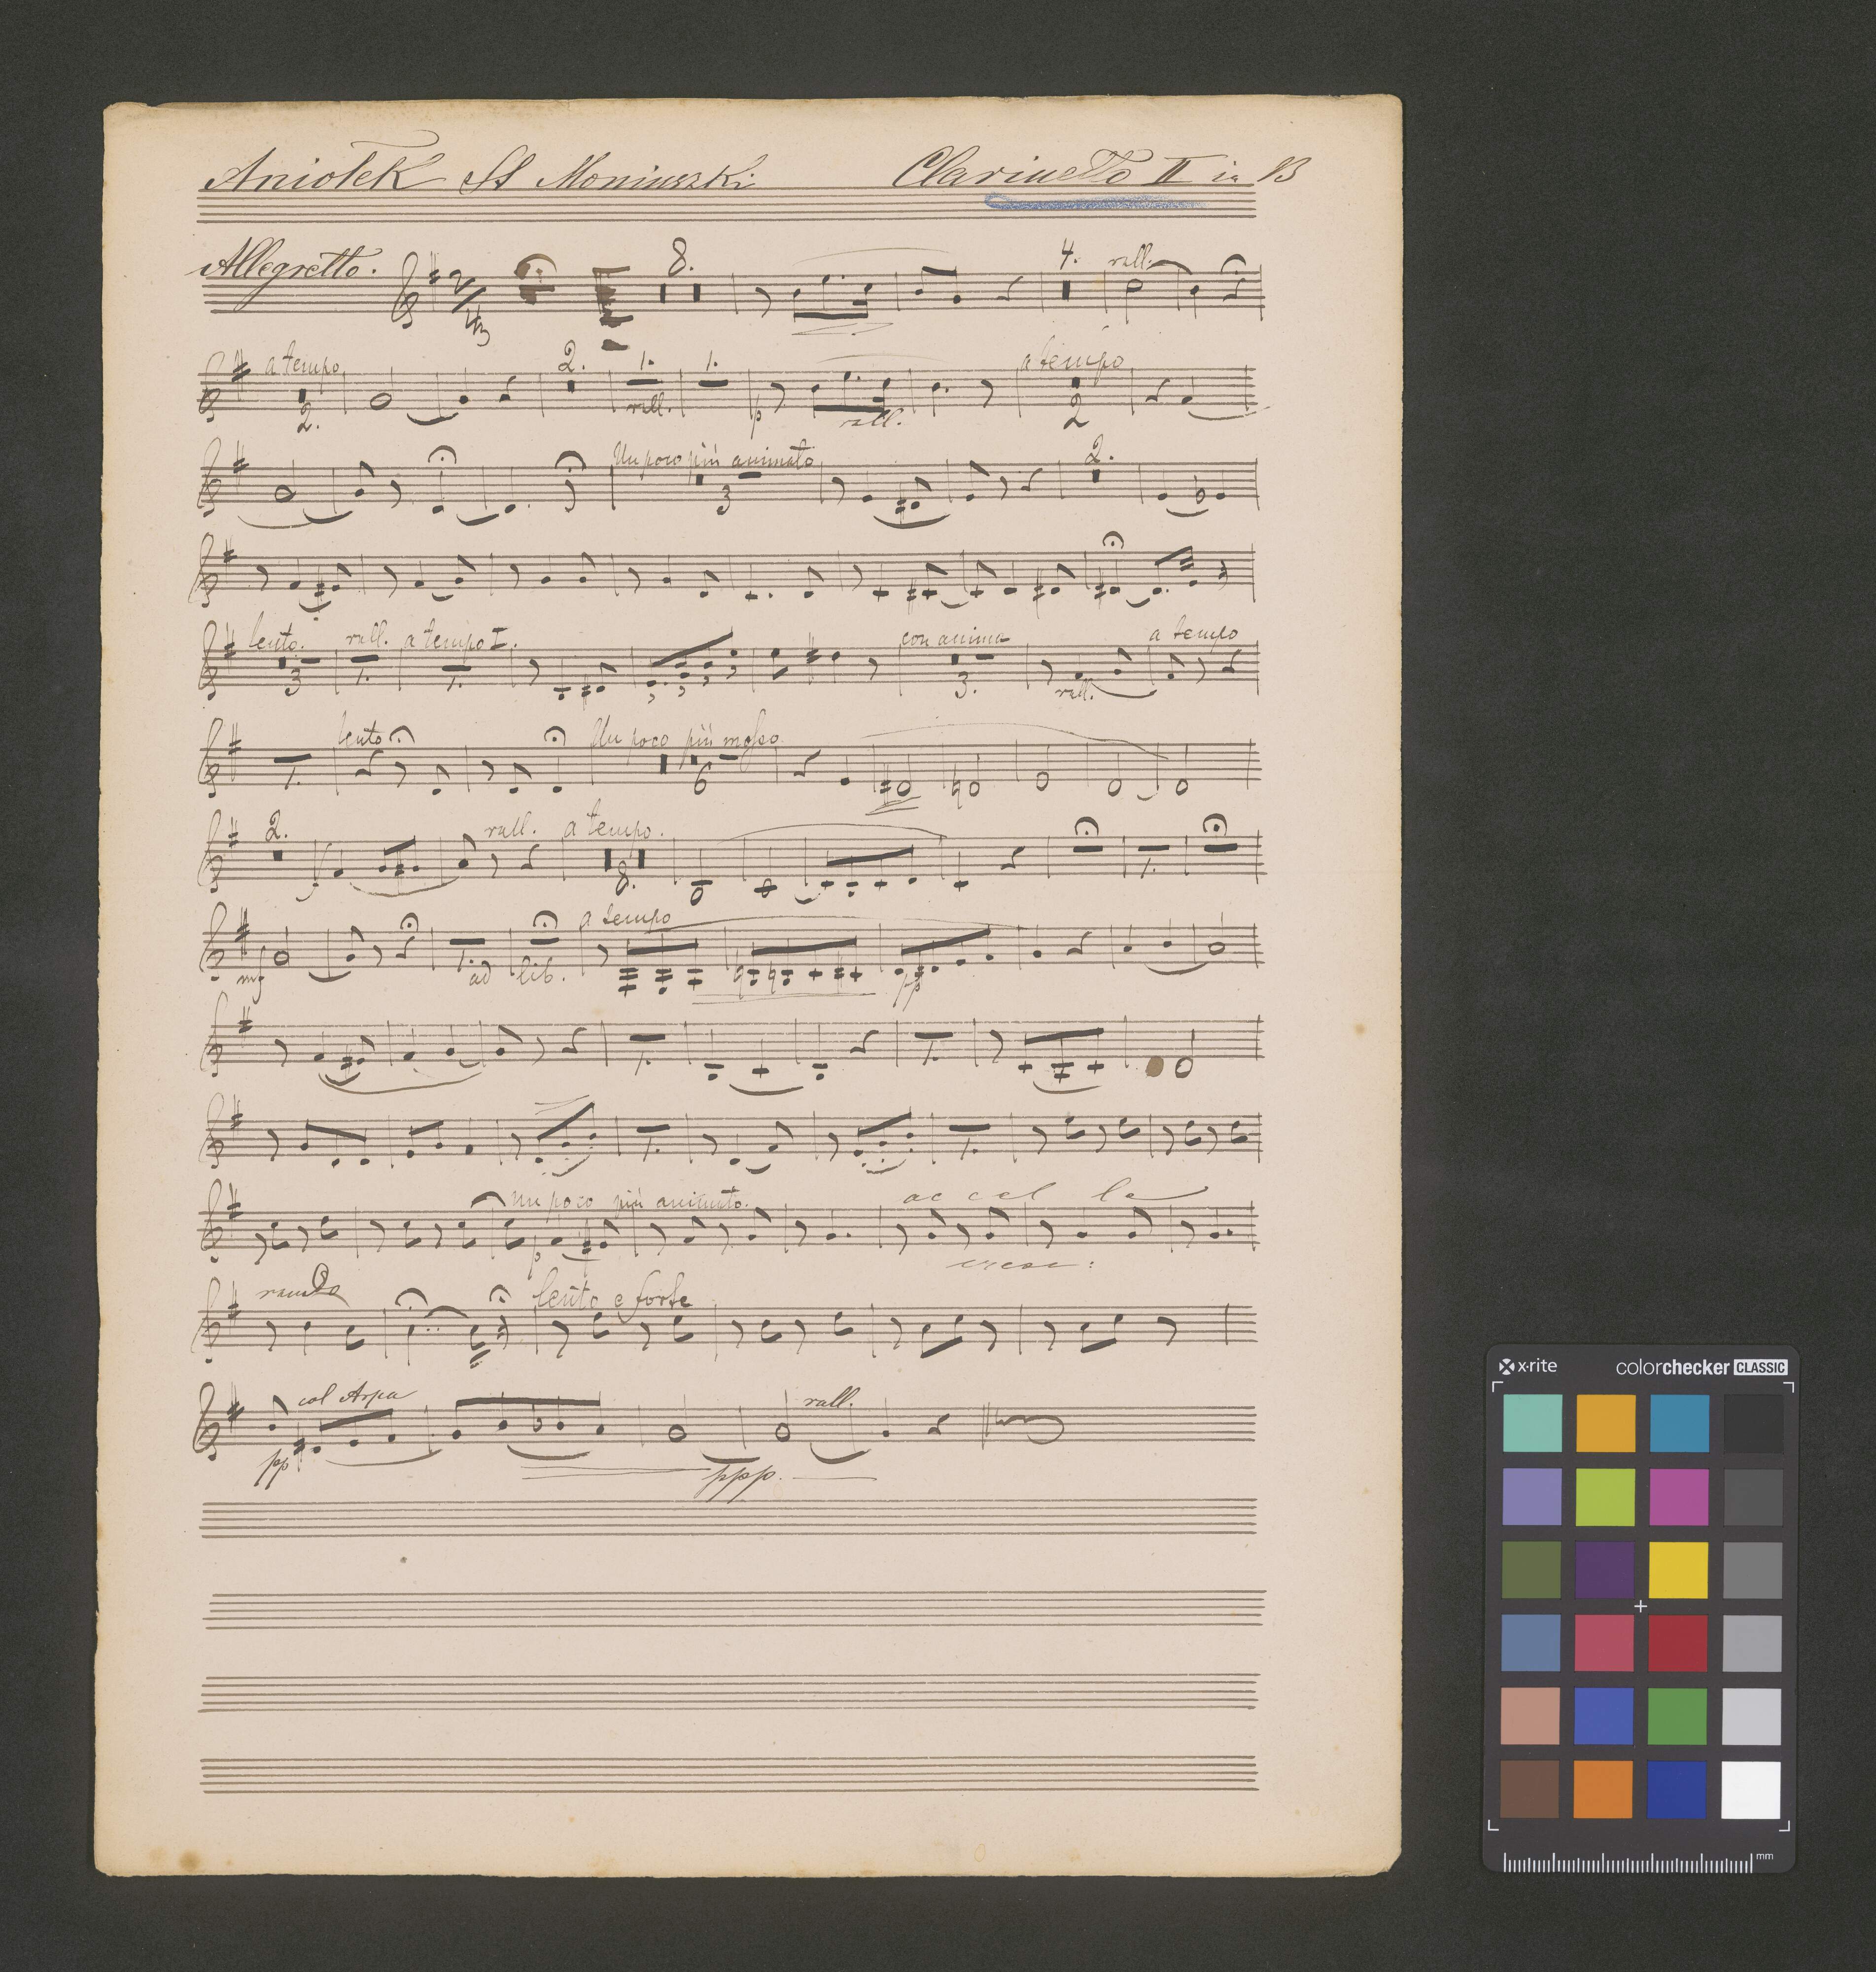 Aniołek St Moniuszki Clarinetto II in B
Allegretto. 2/4 8. 4. rall.
a tempo 2. 1. 1. a tempo
2. rall. p rall. 2
Un poco più animato 2.
3
lento. rall. a tempo I. con anima a tempo
3 1. 1. 3. rall.
lento Un poco più mosso
1. 6
2. rall. a tempo.
8. 1.
a tempo
mf 1. ad lib. pp
1. 1.
1. 1.
un poco più animato. ac cel le
p cresc:
rando lento e forte
col Arpa rall.
pp ppp.
x-rite colorchecker CLASSIC
mm